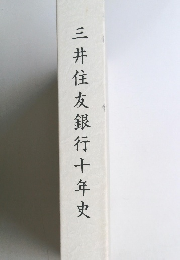 三井住友銀行十年史